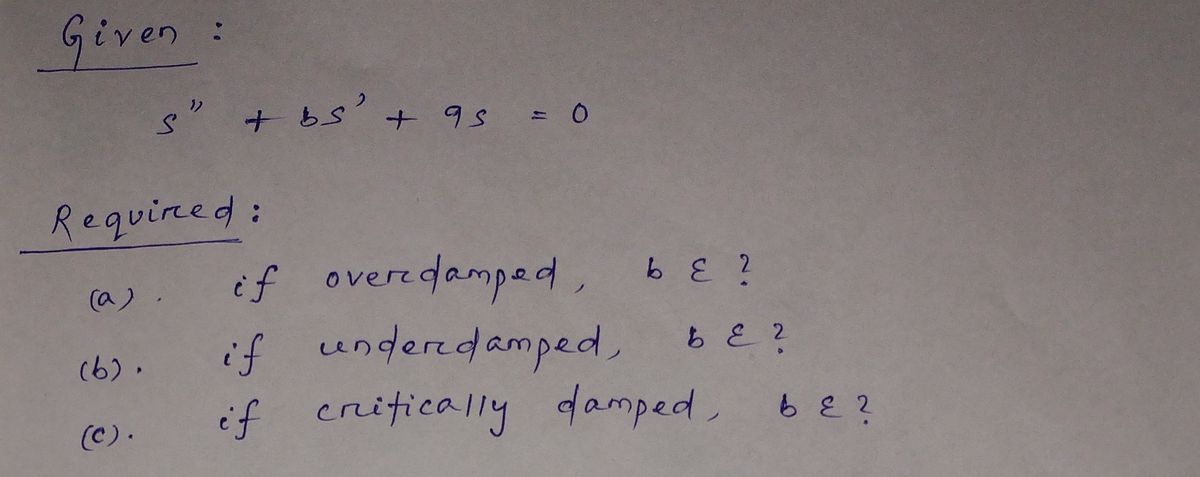 Given :
s" + bs' + 9s = 0
Required :
(a). if overdamped, b ε ?
(b). if underdamped, b ε ?
(c). if critically damped, b ε ?